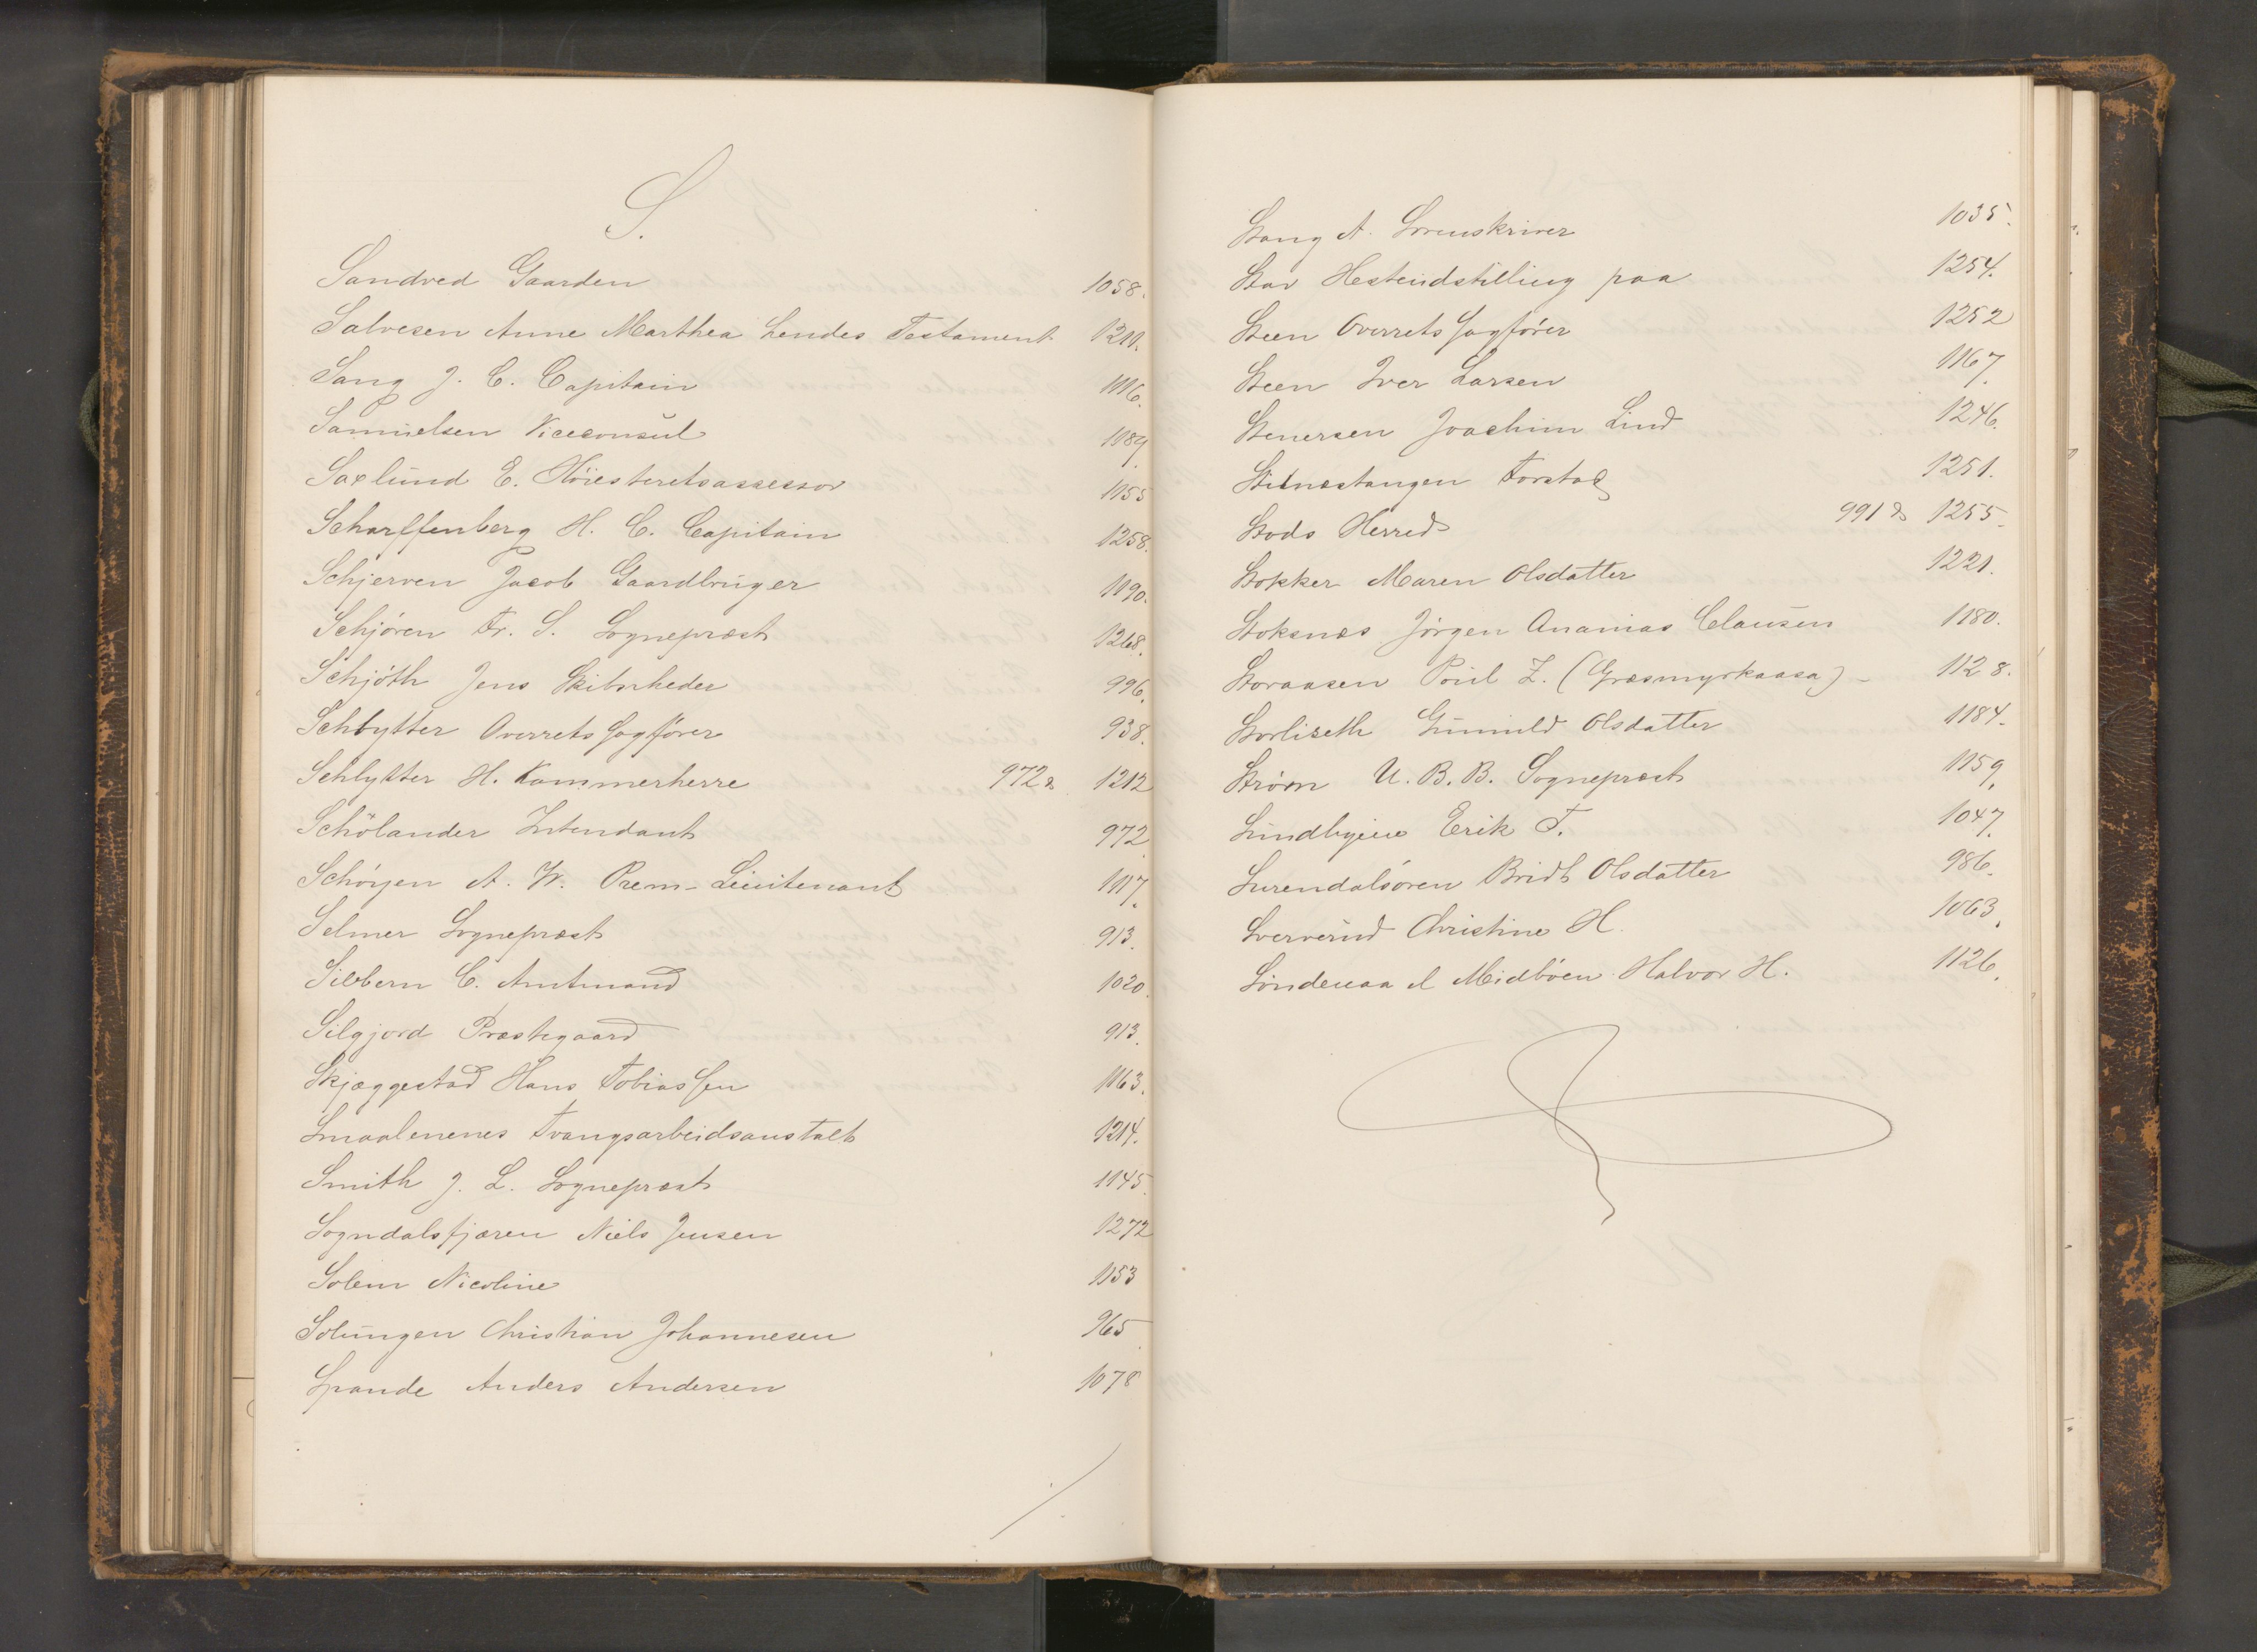 S.
Sandved Gaarden 1058.
Salvesen Anne Marthea Lendes Testament 1210.
Sang J. C. Capitain 1116.
Samuelsen Viceconsul 1189.
Saxlund E. Höiesteretsassessor 1155
Scharffenberg H. C. Capitain 1258.
Schjerven Jacob Gaardbruger 1190.
Schjören Fr. S. Sogneprest 1268.
Schjöth Jens Skibsrheder 996.
Schlytter Overretssagförer 938.
Schlytter H. Kammerherre 972 & 1212
Schölander Intendant 972
Schöyen A. W. Prem-Lieutenant 1117.
Selmer Sogneprest 913.
Sibbern C. Amtmand 1020.
Silgjord Præstegaard 913.
Skjæggestad Hans Tobiassen 1163.
Smaalenenes Tvangsarbeidsanstalt 1214.
Smith J. L. Sogneprest 1145.
Sogndalsfjæren Niels Jensen 1272
Solem Nicoline 1153
Solungen Christian Johannesen 965
Spande Anders Andersen 1078
Stang A. Sorenskriver 1035.
Stav Hesteindstilling paa 1254.
Steen Overretssagförer 1252
Steen Iver Larsen 1167.
Stenersen Joachim Lind 1246.
Stilnæstangen Forstad 1251.
Stods Herred 991 & 1255.
Stokker Maren Olsdatter 1221.
Stoksnæs Jörgen Ananias Clausen 1180.
Storaasen Poul Z. (Græsmyrkaasa) - 1128.
Storliseth Gunnild Olsdatter 1184.
Ström U. B. B. Sogneprest 1159.
Sundbyeie Erik T. 1047.
Surendalsören Bridt Olsdatter 986.
Sververud Christine H. 1063.
Söndenaa el Meidböen Halvor H. 1126.